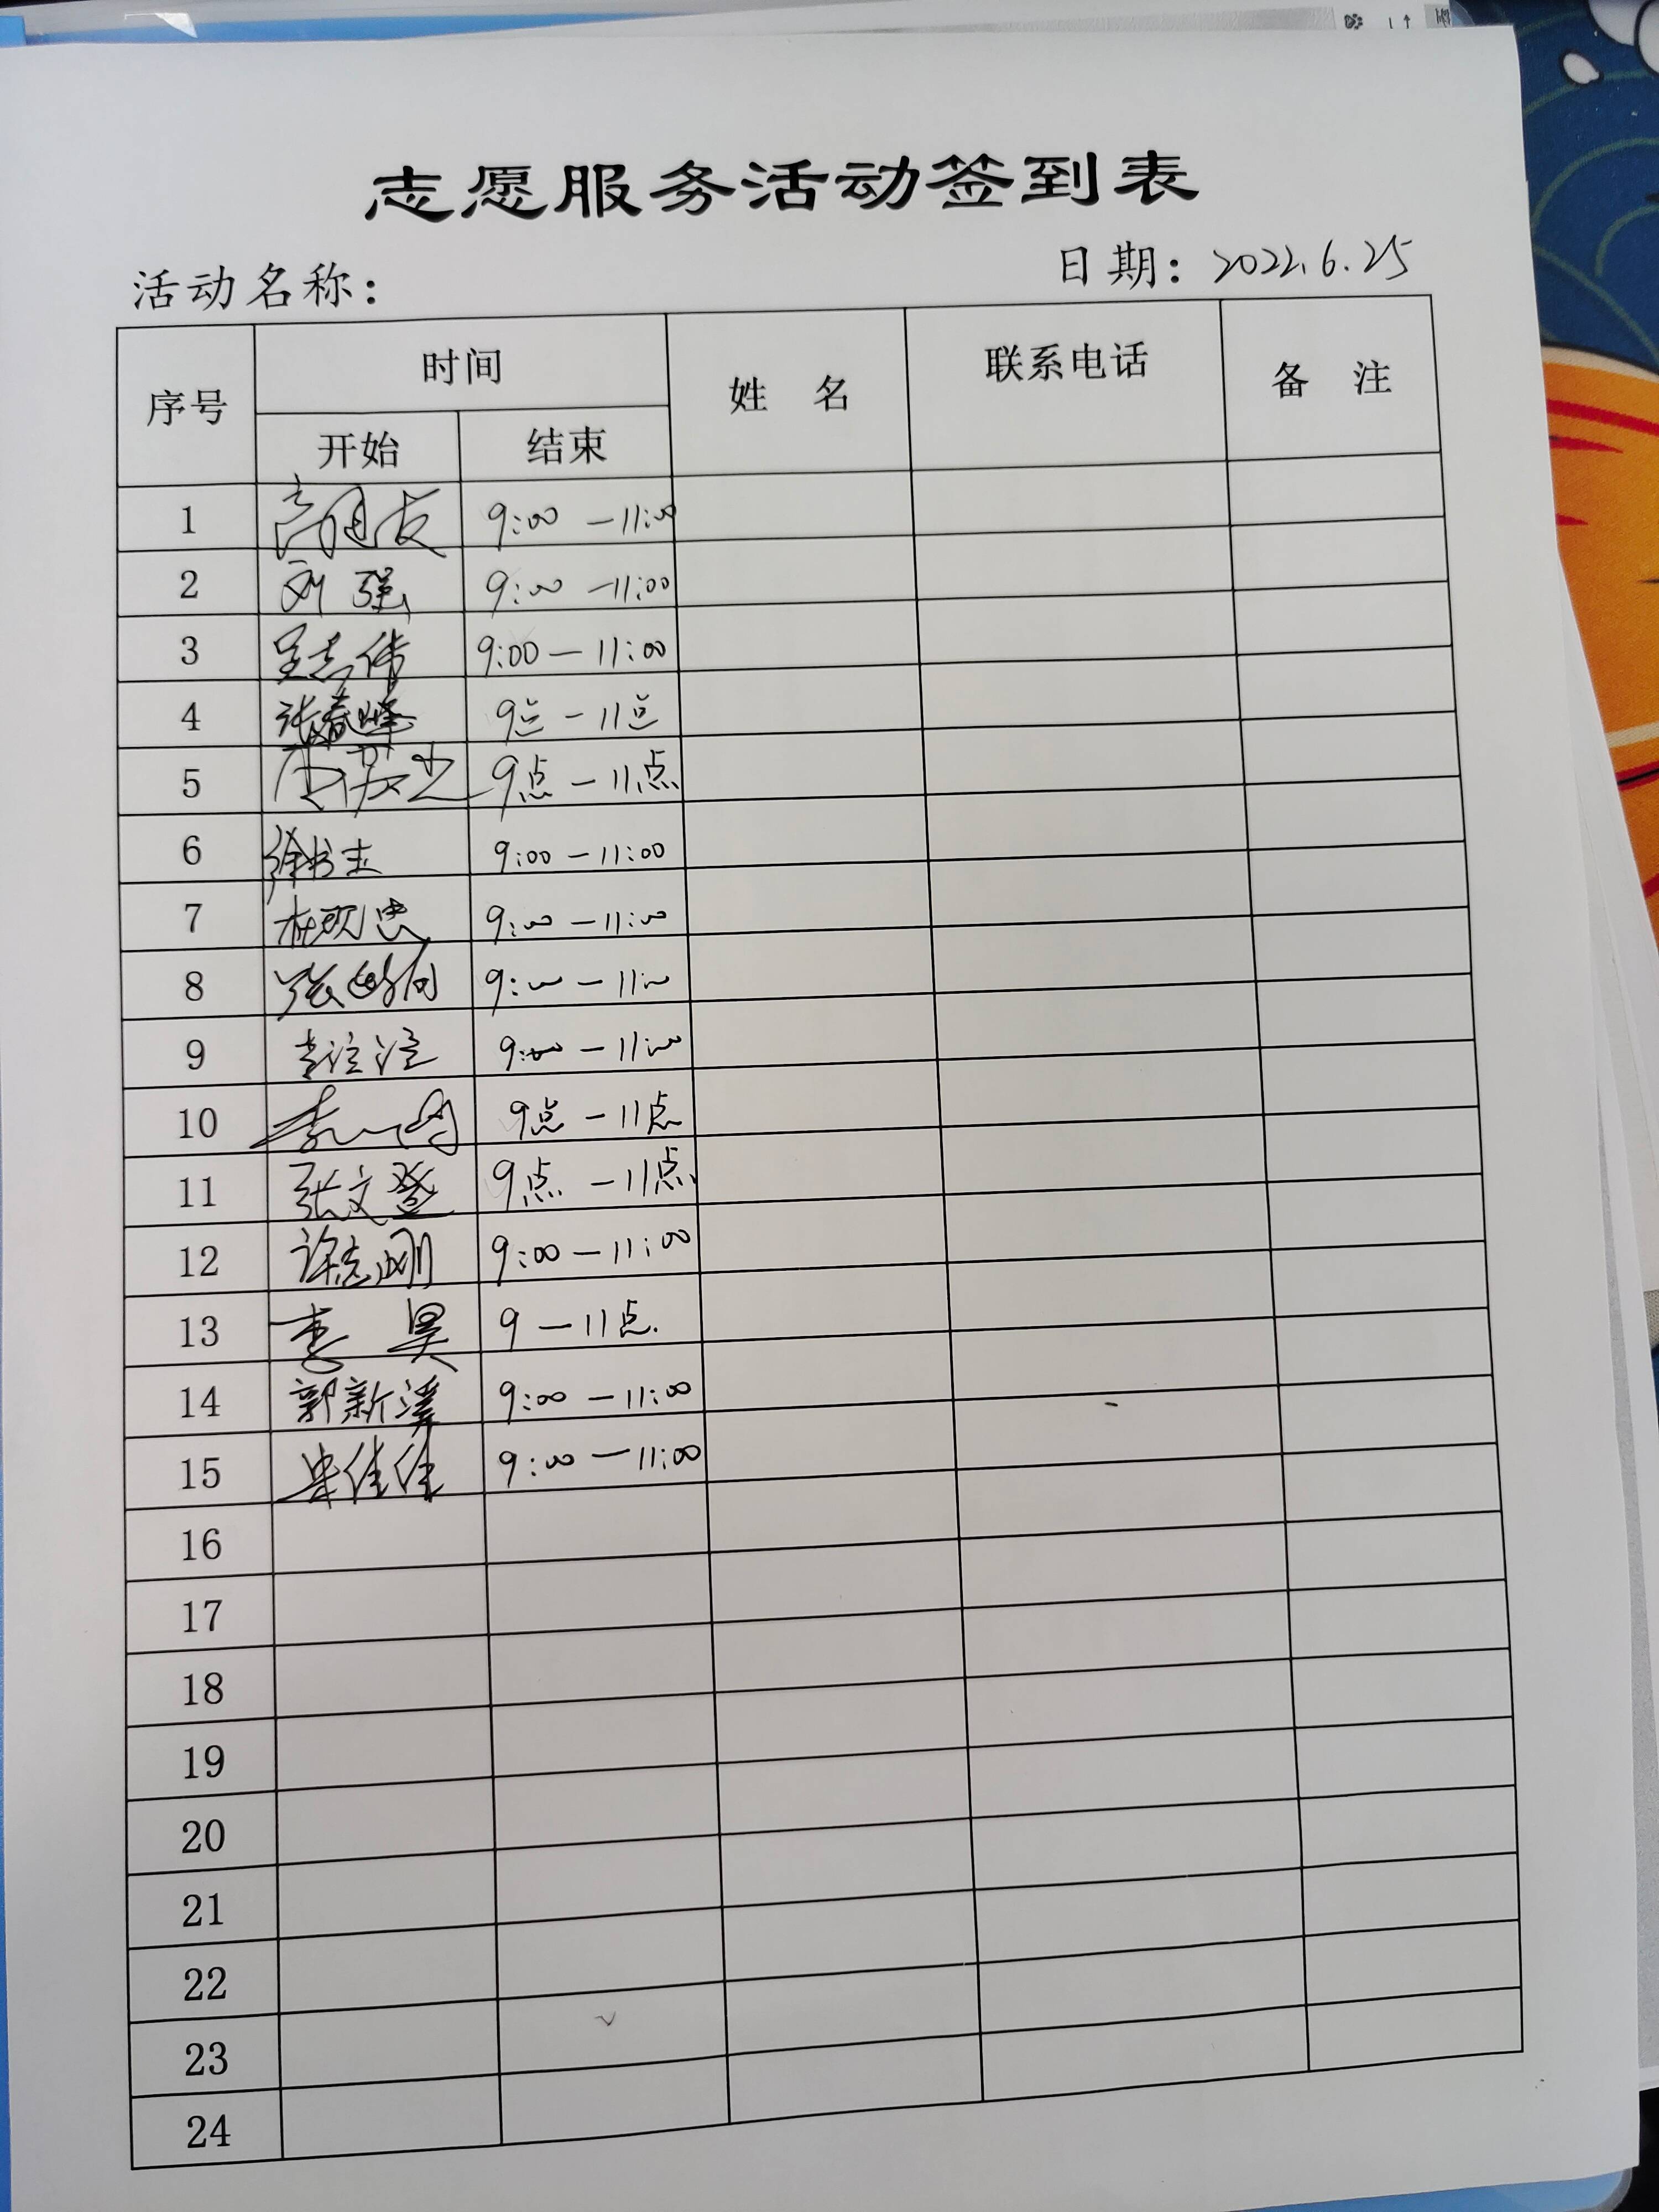 志愿服务活动签到表
活动名称：
日期：2022.6.25
序号 时间 姓 名 联系电话 备 注
开始 结束
1 9:00 -11:00
2 刘强 9:00 -11:00
3 吴志伟 9:00 - 11:00
4 张春峰 9点 - 11点
5 9点 - 11点
6 徐书杰 9:00 - 11:00
7 9:00 - 11:00
8 张 9:00 - 11:00
9 9:00 - 11:00
10 李 9点 - 11点
11 张文登 9点 - 11点
12 许志刚 9:00 - 11:00
13 李昊 9 - 11点.
14 郭新 9:00 - 11:00
15 佳佳 9:00 - 11:00
16
17
18
19
20
21
22
23
24